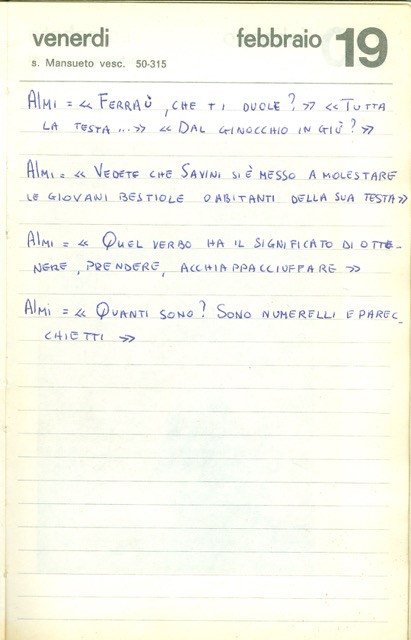 venerdi febbraio 19
s. Mansueto vesc. 50-315
Almi = « Ferraù, che ti duole? » « Tutta
la testa... » « Dal ginocchio in giù? »
Almi = « Vedete che Savini si è messo a molestare
le giovani bestiole oabitanti della sua testa »
Almi = « Quel verbo ha il significato di otte-
nere, prendere, acchiappacciuffare »
Almi = « Quanti sono? Sono numerelli e parec-
chietti »